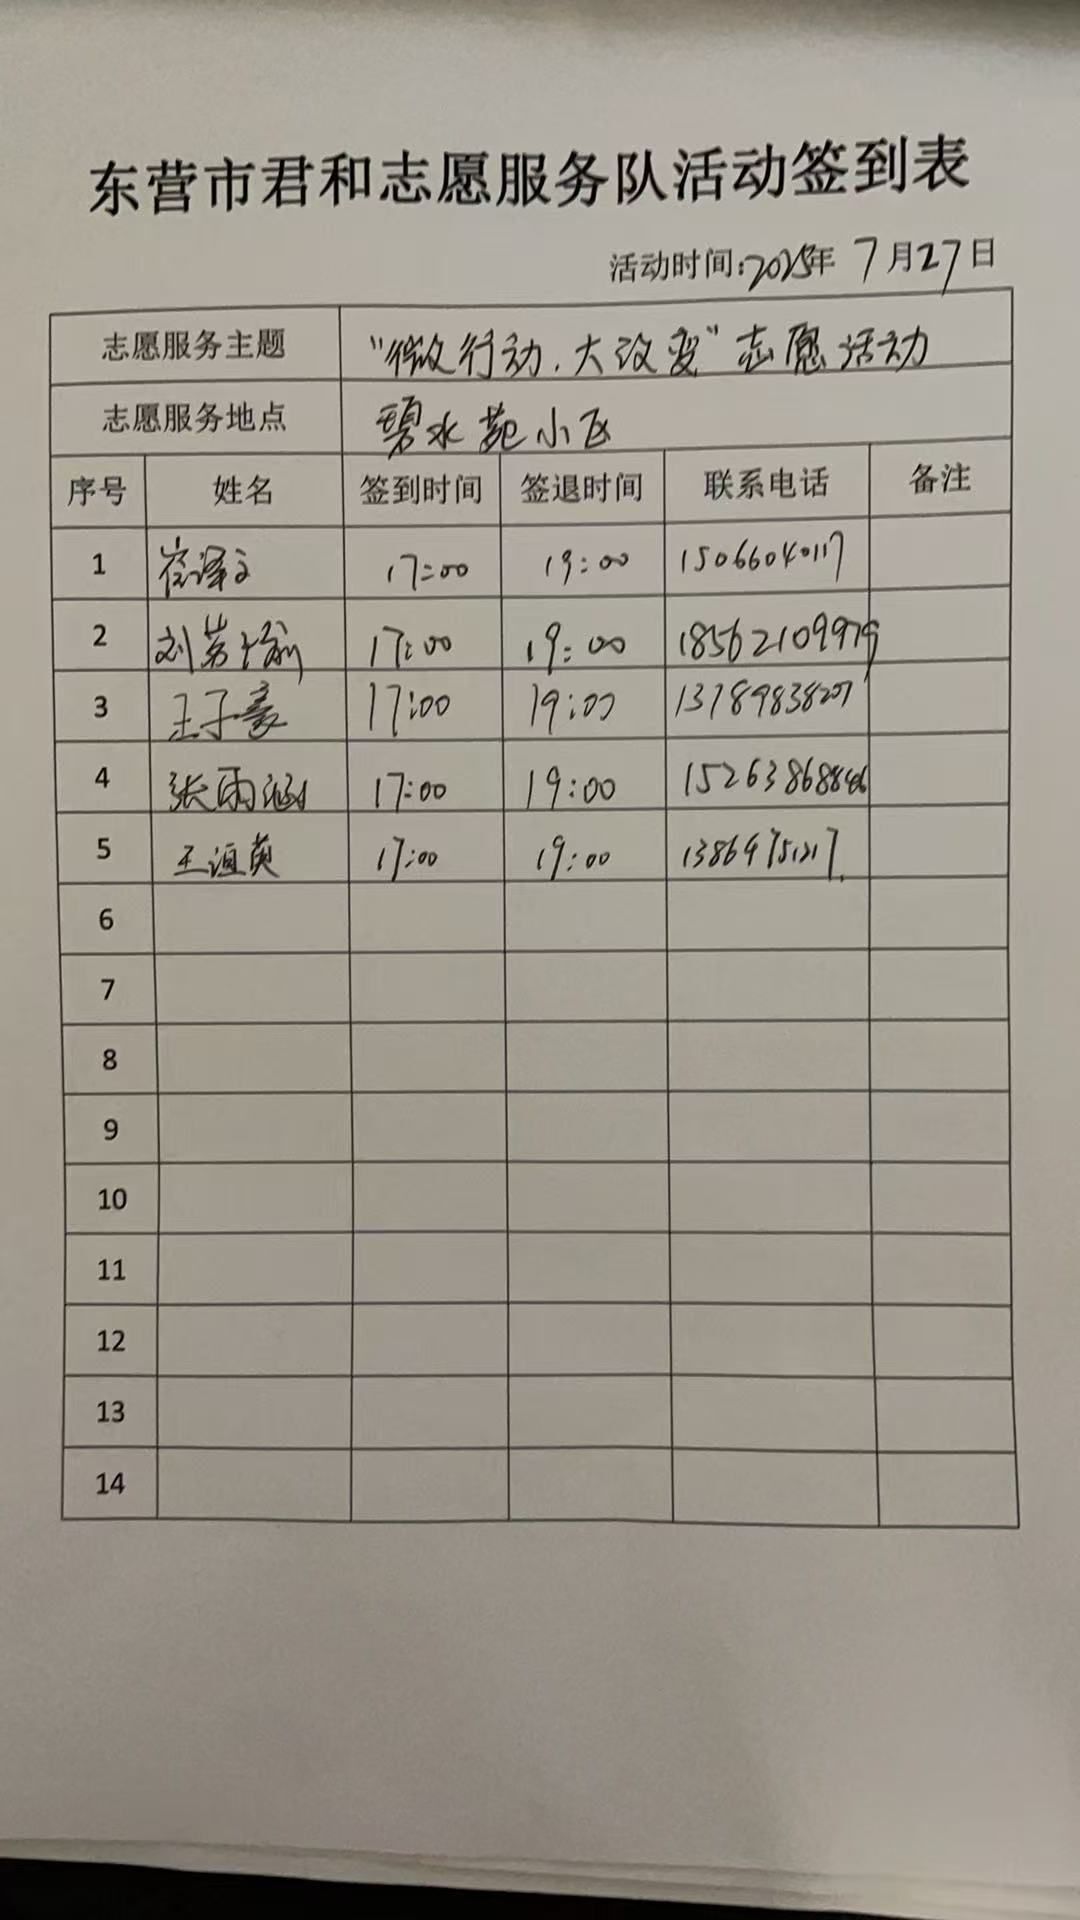 东营市君和志愿服务队活动签到表
活动时间:2025年 7月27日
志愿服务主题 “微行动.大改变”志愿活动
志愿服务地点 碧水苑小区
序号 姓名 签到时间 签退时间 联系电话 备注
1 崔泽文 17:00 19:00 15066040117
2 刘 17:00 19:00 18562109979
3 王子豪 17:00 19:00 13789838207
4 张雨涵 17:00 19:00
5 17:00 19:00
6
7
8
9
10
11
12
13
14